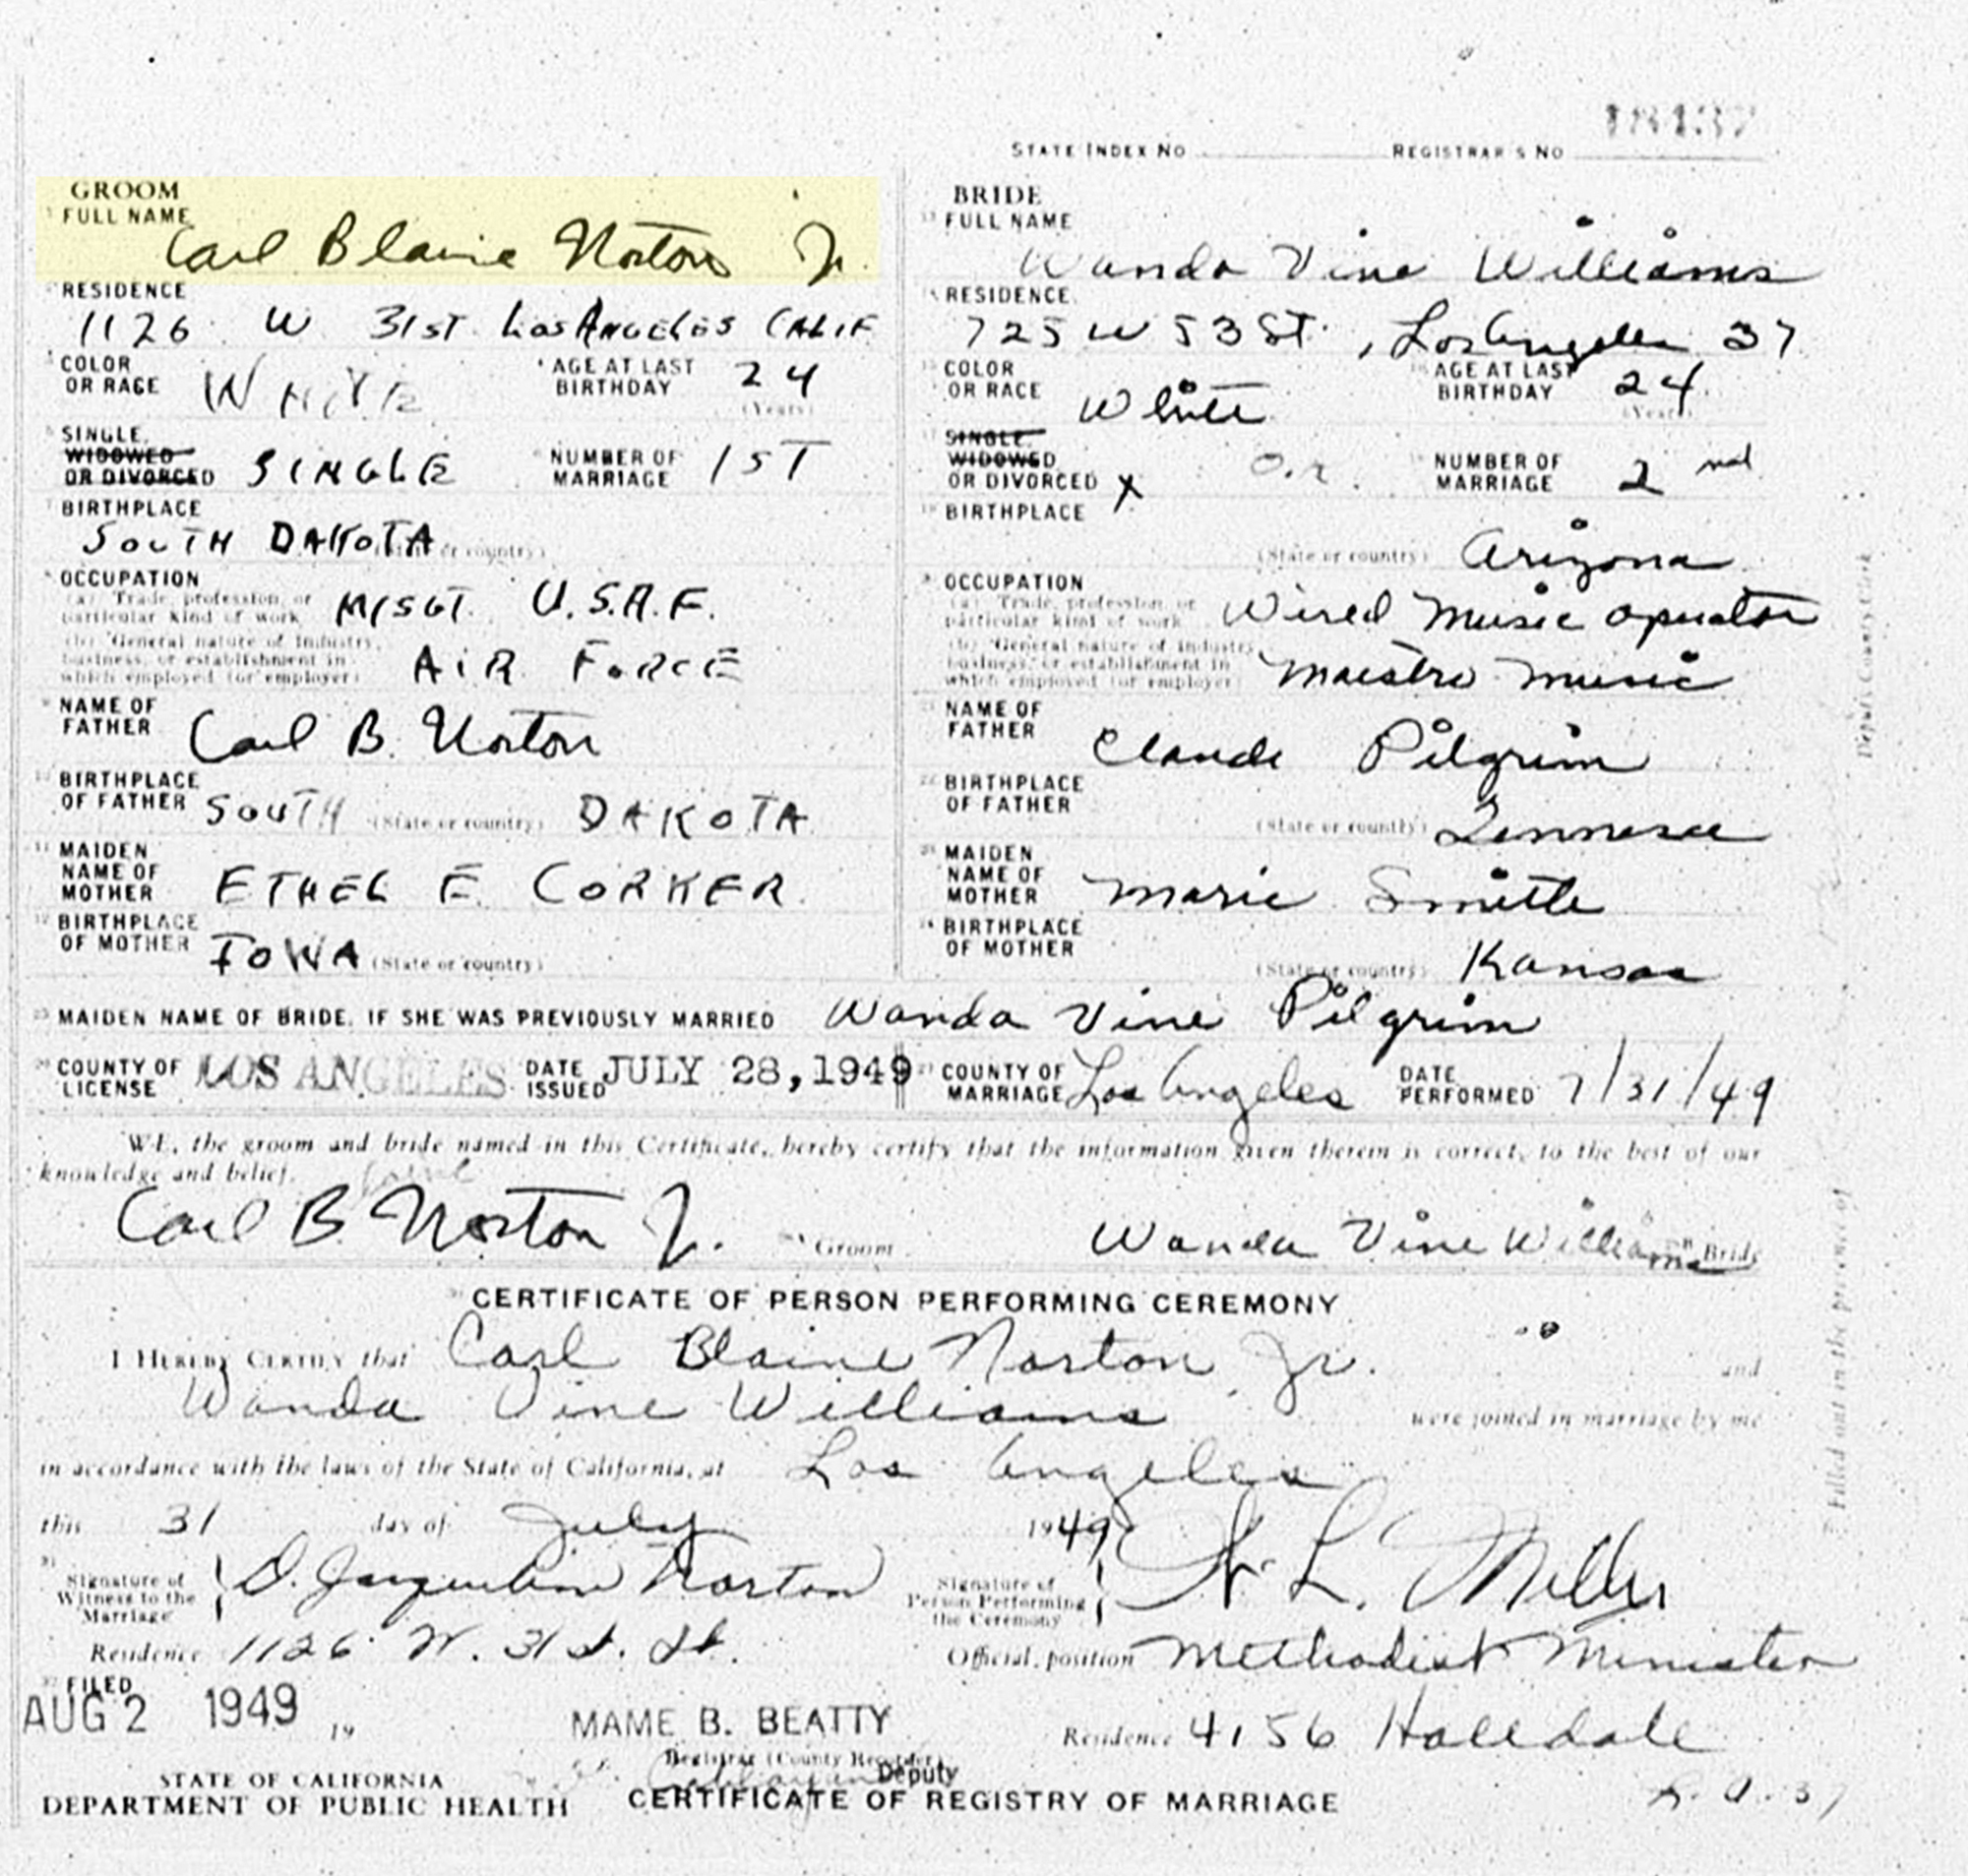 18137
STATE INDEX NO REGISTRAR'S NO
GROOM
FULL NAME
Carl Blaine Norton Jr.
RESIDENCE
1126 W 31ST Los Angeles CALIF
COLOR OR RACE WHITE AGE AT LAST BIRTHDAY 24 (Years)
SINGLE, WIDOWED OR DIVORCED SINGLE NUMBER OF MARRIAGE 1ST
BIRTHPLACE
SOUTH DAKOTA (State or country)
OCCUPATION
(a) Trade, profession, or particular kind of work M/SGT. U.S.A.F.
(b) General nature of Industry, business, or establishment in which employed (or employer) AIR FORCE
NAME OF FATHER Carl B. Norton
BIRTHPLACE OF FATHER SOUTH (State or country) DAKOTA
MAIDEN NAME OF MOTHER ETHEL E. CORKER
BIRTHPLACE OF MOTHER IOWA (State or country)
BRIDE
FULL NAME
Wanda Vine Williams
RESIDENCE
725 W 53 St., Los Angeles 37
COLOR OR RACE White AGE AT LAST BIRTHDAY 24 (Years)
SINGLE, WIDOWED OR DIVORCED X NUMBER OF MARRIAGE 2nd
BIRTHPLACE
(State or country) Arizona
OCCUPATION
(a) Trade, profession, or particular kind of work Wired Music operator
(b) General nature of Industry, business, or establishment in which employed (or employer) Maestro Music
NAME OF FATHER Claude Pilgrim
BIRTHPLACE OF FATHER (State or country) Tennessee
MAIDEN NAME OF MOTHER Marie Smith
BIRTHPLACE OF MOTHER (State or country) Kansas
MAIDEN NAME OF BRIDE, IF SHE WAS PREVIOUSLY MARRIED Wanda Vine Pilgrim
COUNTY OF LICENSE LOS ANGELES DATE ISSUED JULY 28, 1949 COUNTY OF MARRIAGE Los Angeles DATE PERFORMED 7/31/49
WE, the groom and bride named in this Certificate, hereby certify that the information given therein is correct, to the best of our
knowledge and belief.
Carl B Norton Jr. Groom Wanda Vine Williams Bride
CERTIFICATE OF PERSON PERFORMING CEREMONY
I HEREBY CERTIFY that Carl Blaine Norton Jr. and
Wanda Vine Williams were joined in marriage by me
in accordance with the laws of the State of California, at Los Angeles
this 31 day of July 1949
Signature of Witness to the Marriage D. Jacqueline Norton Signature of Person Performing the Ceremony L. Miller
Residence 1126 W. 31st. St. Official position Methodist Minister
FILED
AUG 2 1949 19 MAME B. BEATTY Residence 4156 Halldale
Registrar (County Recorder)
Deputy
L. A. 37
STATE OF CALIFORNIA
DEPARTMENT OF PUBLIC HEALTH CERTIFICATE OF REGISTRY OF MARRIAGE
Filled out in the presence of
Deputy County Clerk